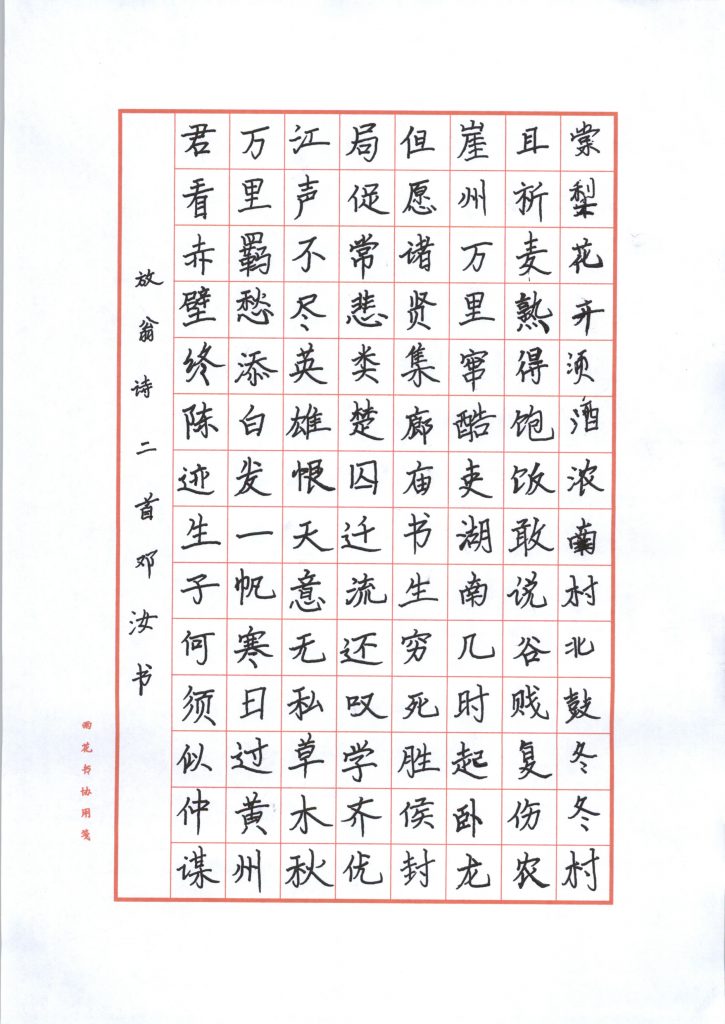 棠梨花开须酒浓南村北鼓冬冬村
耳祈麦熟得饱饭敢说谷贱复伤农
崖州万里窜酷吏湖南几时起卧龙
但愿诸贤集廊庙书生穷死胜侯封
局促常悲类楚囚迁流还叹学齐优
江声不尽英雄恨天意无私草木秋
万里羁愁添白发一帆寒日过黄州
君看赤壁终陈迹生子何须似仲谋
放翁诗二首邓汝书
雨花书协用笺